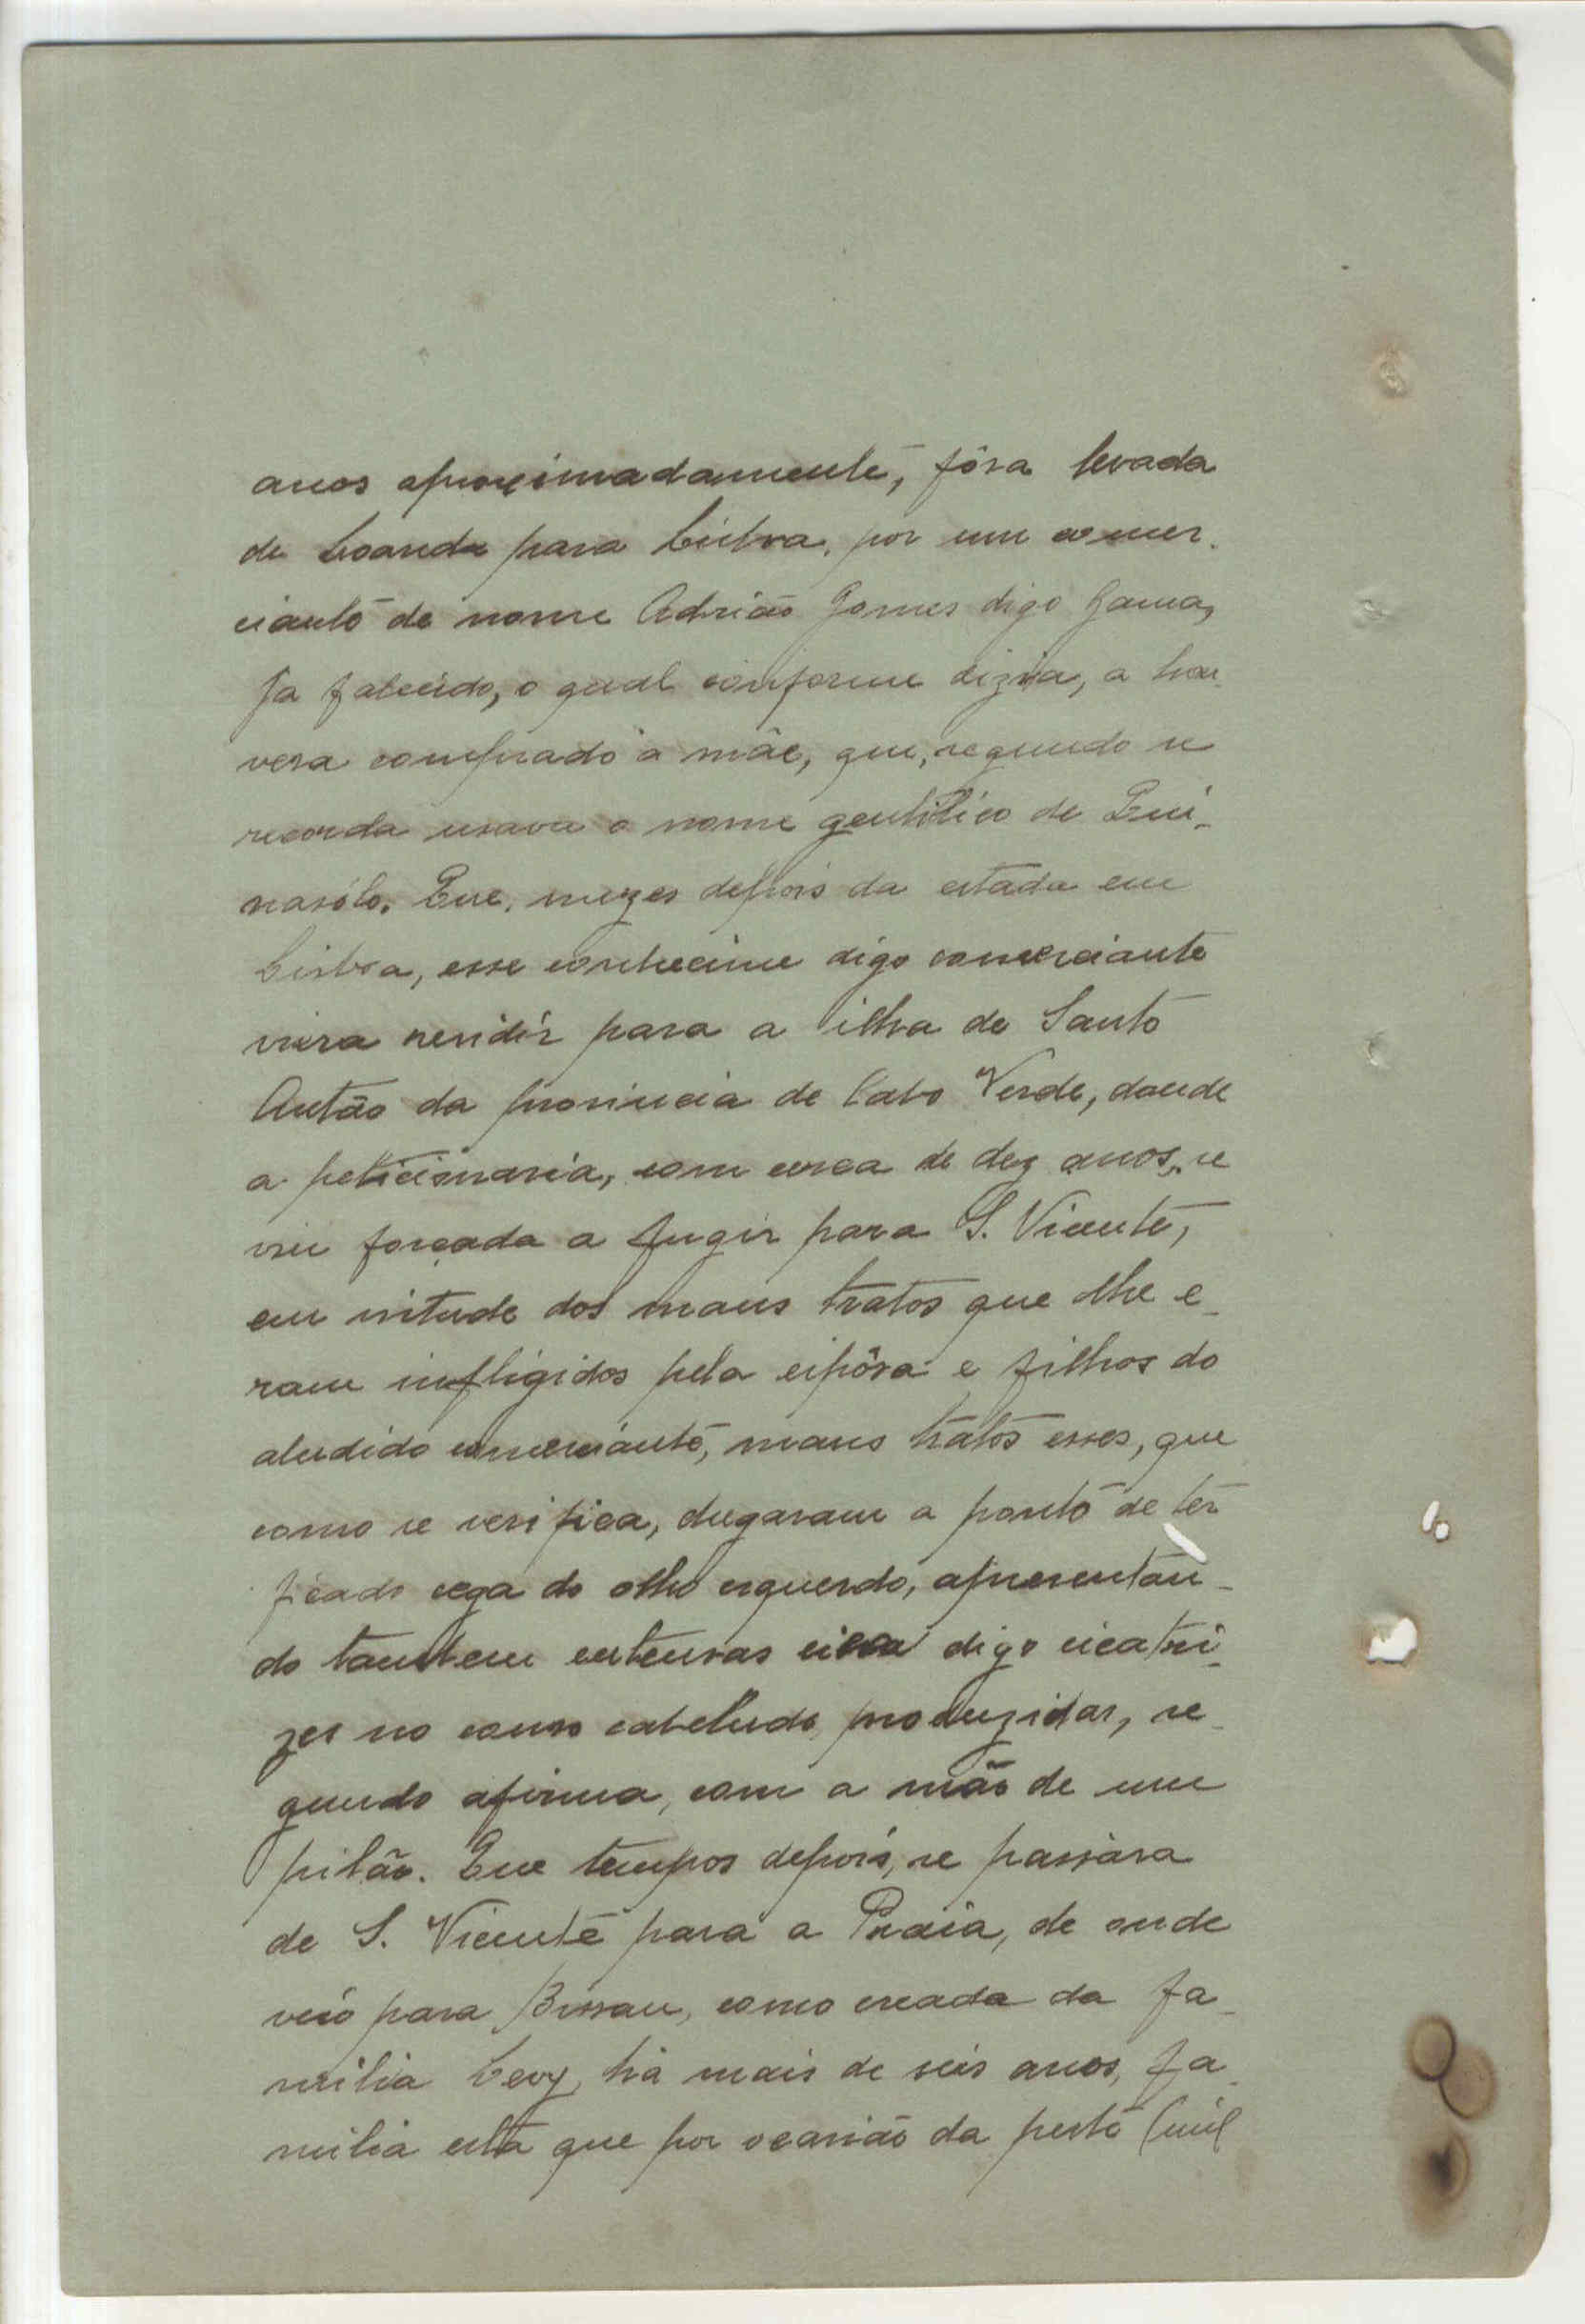 anos aproximadamente, fôra levada
de Loanda para Lisboa, por um comer-
ciante de nome Adrião Gomes digo Gama,
já falecido, o qual conforme dizia, a hou-
vera comprado á mãe, que, segundo se
recorda usava o nome gentilico de Qui-
nasólo. Que, mezes depois da estada em
Lisboa, esse conhecime digo comerciante
viera residir para a ilha de Santo
Antão da provincia de Cabo Verde, donde
a peticionaria, com cerca de dez anos, se
viu forçada a fugir para S. Vicente,
em virtude dos maus tratos que lhe e-
ram infligidos pela espôsa e filhos do
aludido comerciante, maus tratos esses, que
como se verifica, chegaram a ponto de ter
ficado cega do olho esquerdo, apresentan-
do tambem extensas cica digo cicatri-
zes no couro cabeludo produzidas, se-
gundo afirma, com a mão de um
pilão. Que tempos depois, se passára
de S. Vicente para a Praia, de onde
veio para Bissau, como creada da fa-
milia Levy, há mais de seis anos, fa-
milia esta que por ocasião da peste (mil